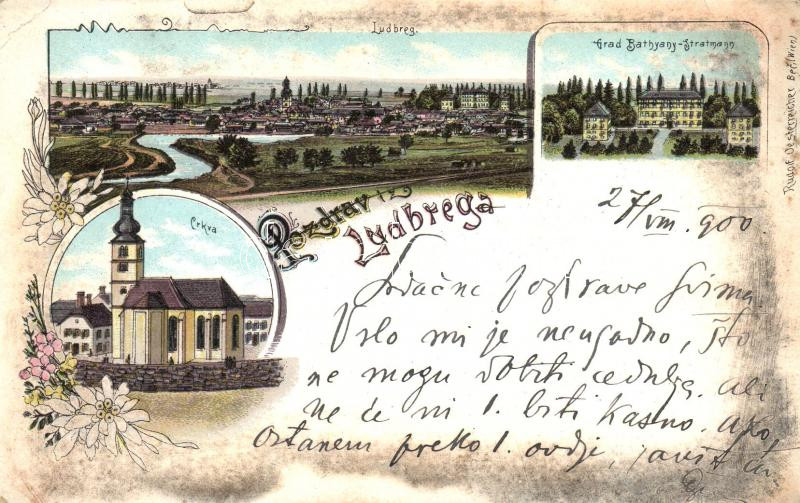 Ludbreg.
Grad Bathyany-Stratmann
Rudolf Oesterreicher Beč (Wien)
Crkva
Pozdrav iz
Ludbrega
27/VIII. 900.
Srdačne pozdrave svima.
Vrlo mi je neugodno, što
ne mogu dobiti cedulje, ali
ne će ni 1. biti kasno. Ako
ostanem preko 1. ovdje, javit ću